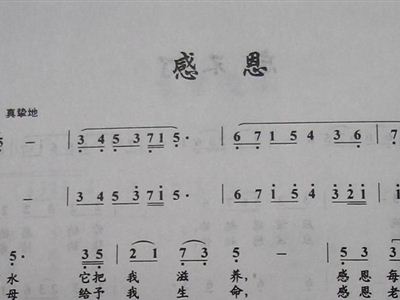 感恩
真挚地
5 - | 3 4 5 3 7 1 5· | 6 7 1 5 4 3 6 | 7
5 - | 3 4 5 3 7 1 5· | 6 7 1 5 4 3 2 1 | 1
5· 3 5 | 2 1 7 3 | 5 - | 5 3 3
水 它把 我 滋 养, 感恩 每
母 给予 我 生 命, 感恩 老